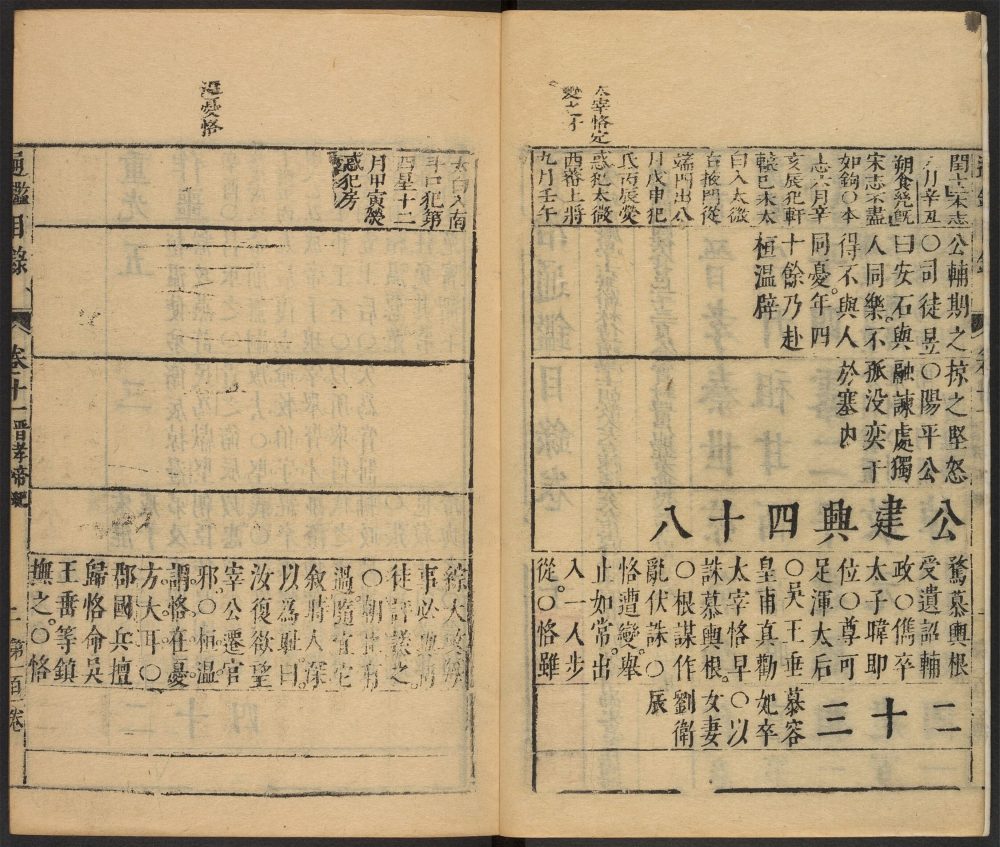 太宰恪定
宋志
八月辛丑
朔食幾既
宋志不盡
如鉤〇本
志六月辛
亥辰犯軒
轅己未太
白入太微
右掖門從
端門出八
月戊申犯
氐丙辰熒
惑犯太微
西蕃上將
九月壬午
公輔期之
〇司徒昱
曰安石與
人同樂不
得不與人
同憂年四
十餘乃赴
桓温辟
掠之堅怒
〇陽平公
融諫處獨
孤没奕于
於塞内
公建興四十八
騖慕輿根
受遺詔輔
政〇儁卒
太子暐即
位〇尊可
足渾太后
〇吳王垂
皇甫真勸
太宰恪早
誅慕輿根
〇根謀作
亂伏誅〇
恪遭變舉
止如常出
入一人步
從〇恪雖
二十三
慕容
妃卒
〇以
女妻
劉衛
辰
温憂恪
太白入南
斗口犯第
四星十二
月甲寅熒
惑犯房
綜大要每
事必與
徒評議之
〇朝士有
過隨宜它
敘時人深
以為耻曰
汝復欲望
宰公遷官
邪〇桓温
謂恪在憂
方大耳〇
郡國兵擅
歸恪命吳
王垂等鎮
撫之〇恪
通鑑目錄
卷十一
二
第一百
卷